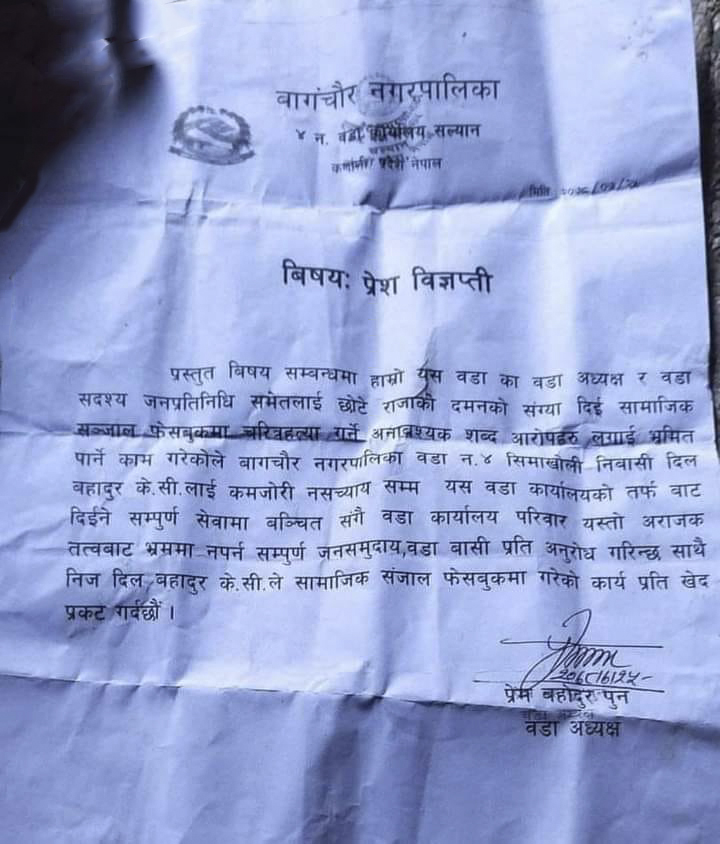 बागंचौर नगरपालिका
४ न. वडा कार्यालय सल्यान
कर्णाली प्रदेश नेपाल
मिति
बिषय: प्रेश विज्ञप्ती
प्रस्तुत बिषय सम्बन्धमा हाम्रो यस वडा का वडा अध्यक्ष र वडा
सदश्य जनप्रतिनिधि समेतलाई छोटे राजाको दमनको संग्या दिई सामाजिक
सञ्जाल फेसबुकमा चरित्रहत्या गर्ने अनावश्यक शब्द आरोपहरु लगाई भ्रमित
पार्ने काम गरेकोले बागचौर नगरपालिका वडा न.४ सिमाखोली निबासी दिल
बहादुर के.सी.लाई कमजोरी नसच्याय सम्म यस वडा कार्यालयको तर्फ बाट
दिईने सम्पुर्ण सेवामा बञ्चित संगै वडा कार्यालय परिवार यस्तो अराजक
तत्वबाट भ्रममा नपर्न सम्पुर्ण जनसमुदाय,वडा बासी प्रति अनुरोध गरिन्छ साथै
निज दिल बहादुर के.सी.ले सामाजिक संजाल फेसबुकमा गरेको कार्य प्रति खेद
प्रकट गर्दछौं ।
प्रेम बहादुर पुन
वडा अध्यक्ष